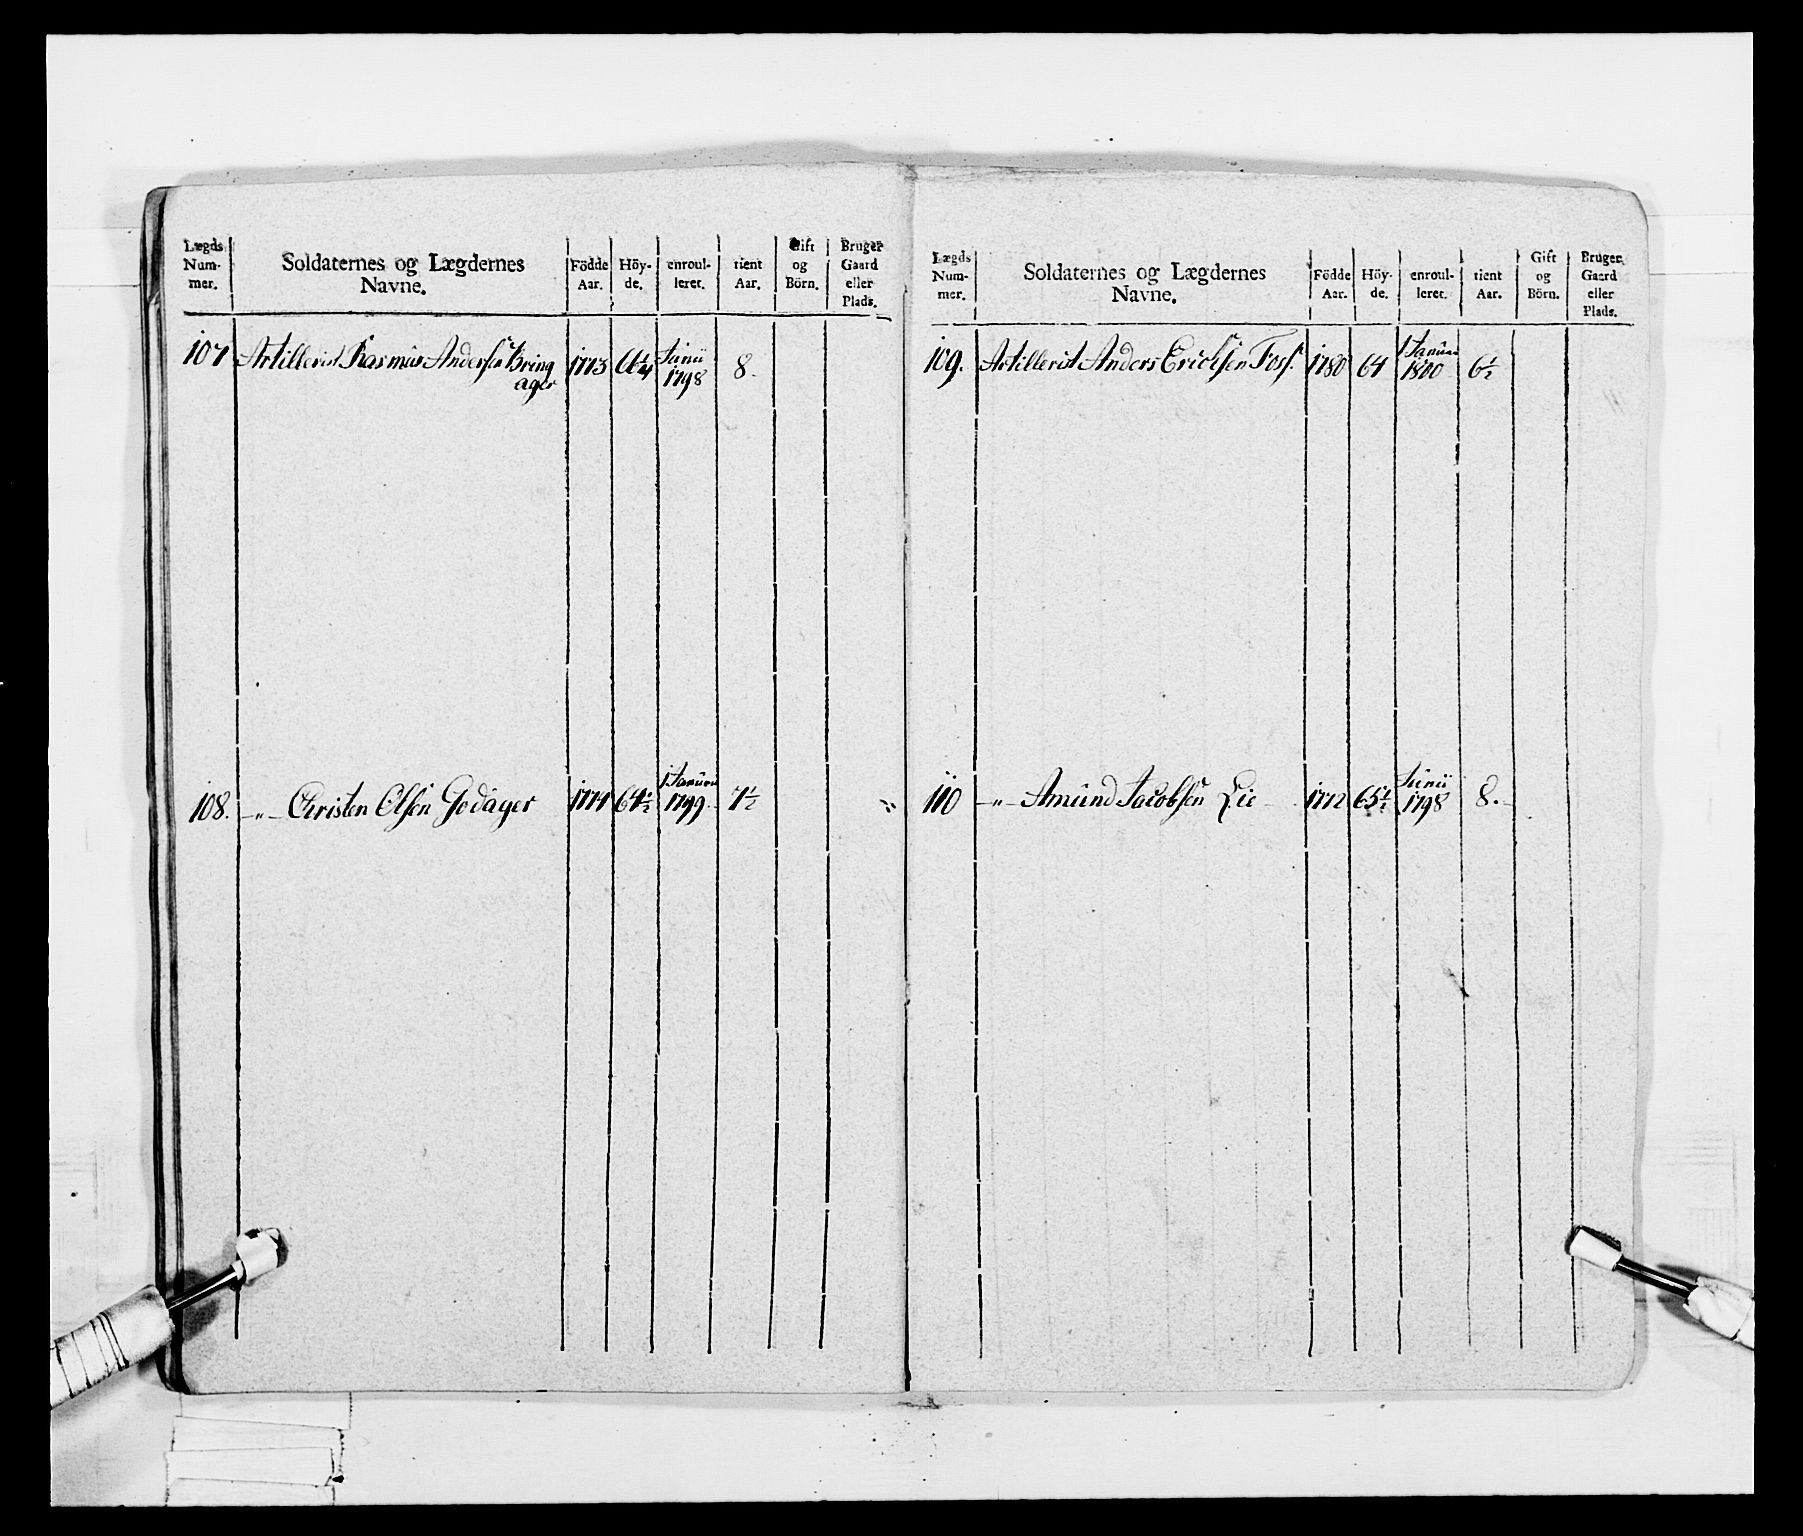 Lægds Num- mer. Soldaternes og Lægdernes Navne. Födde Aar. Höy- de. enroul- leret. tient Aar. Gift og Börn. Bruger Gaard eller Plads.
107 Artillerist Rasmus Andersen Bring 1773 Junii 8.
ager 1798
1 Januarii
108. -"- Christen Olsen Godager 64½ 1799. 7½
Lægds Num- mer. Soldaternes og Lægdernes Navne. Födde Aar. Höy- de. enroul- leret. tient Aar. Gift og Börn. Bruger Gaard eller Plads.
1 Januarii
109. Artillerist Anders Ericksen Foss. 1780 64 1800 6½
Junii
110 -"- Amund Jacobsen Lie 1772 65½ 1798 8.